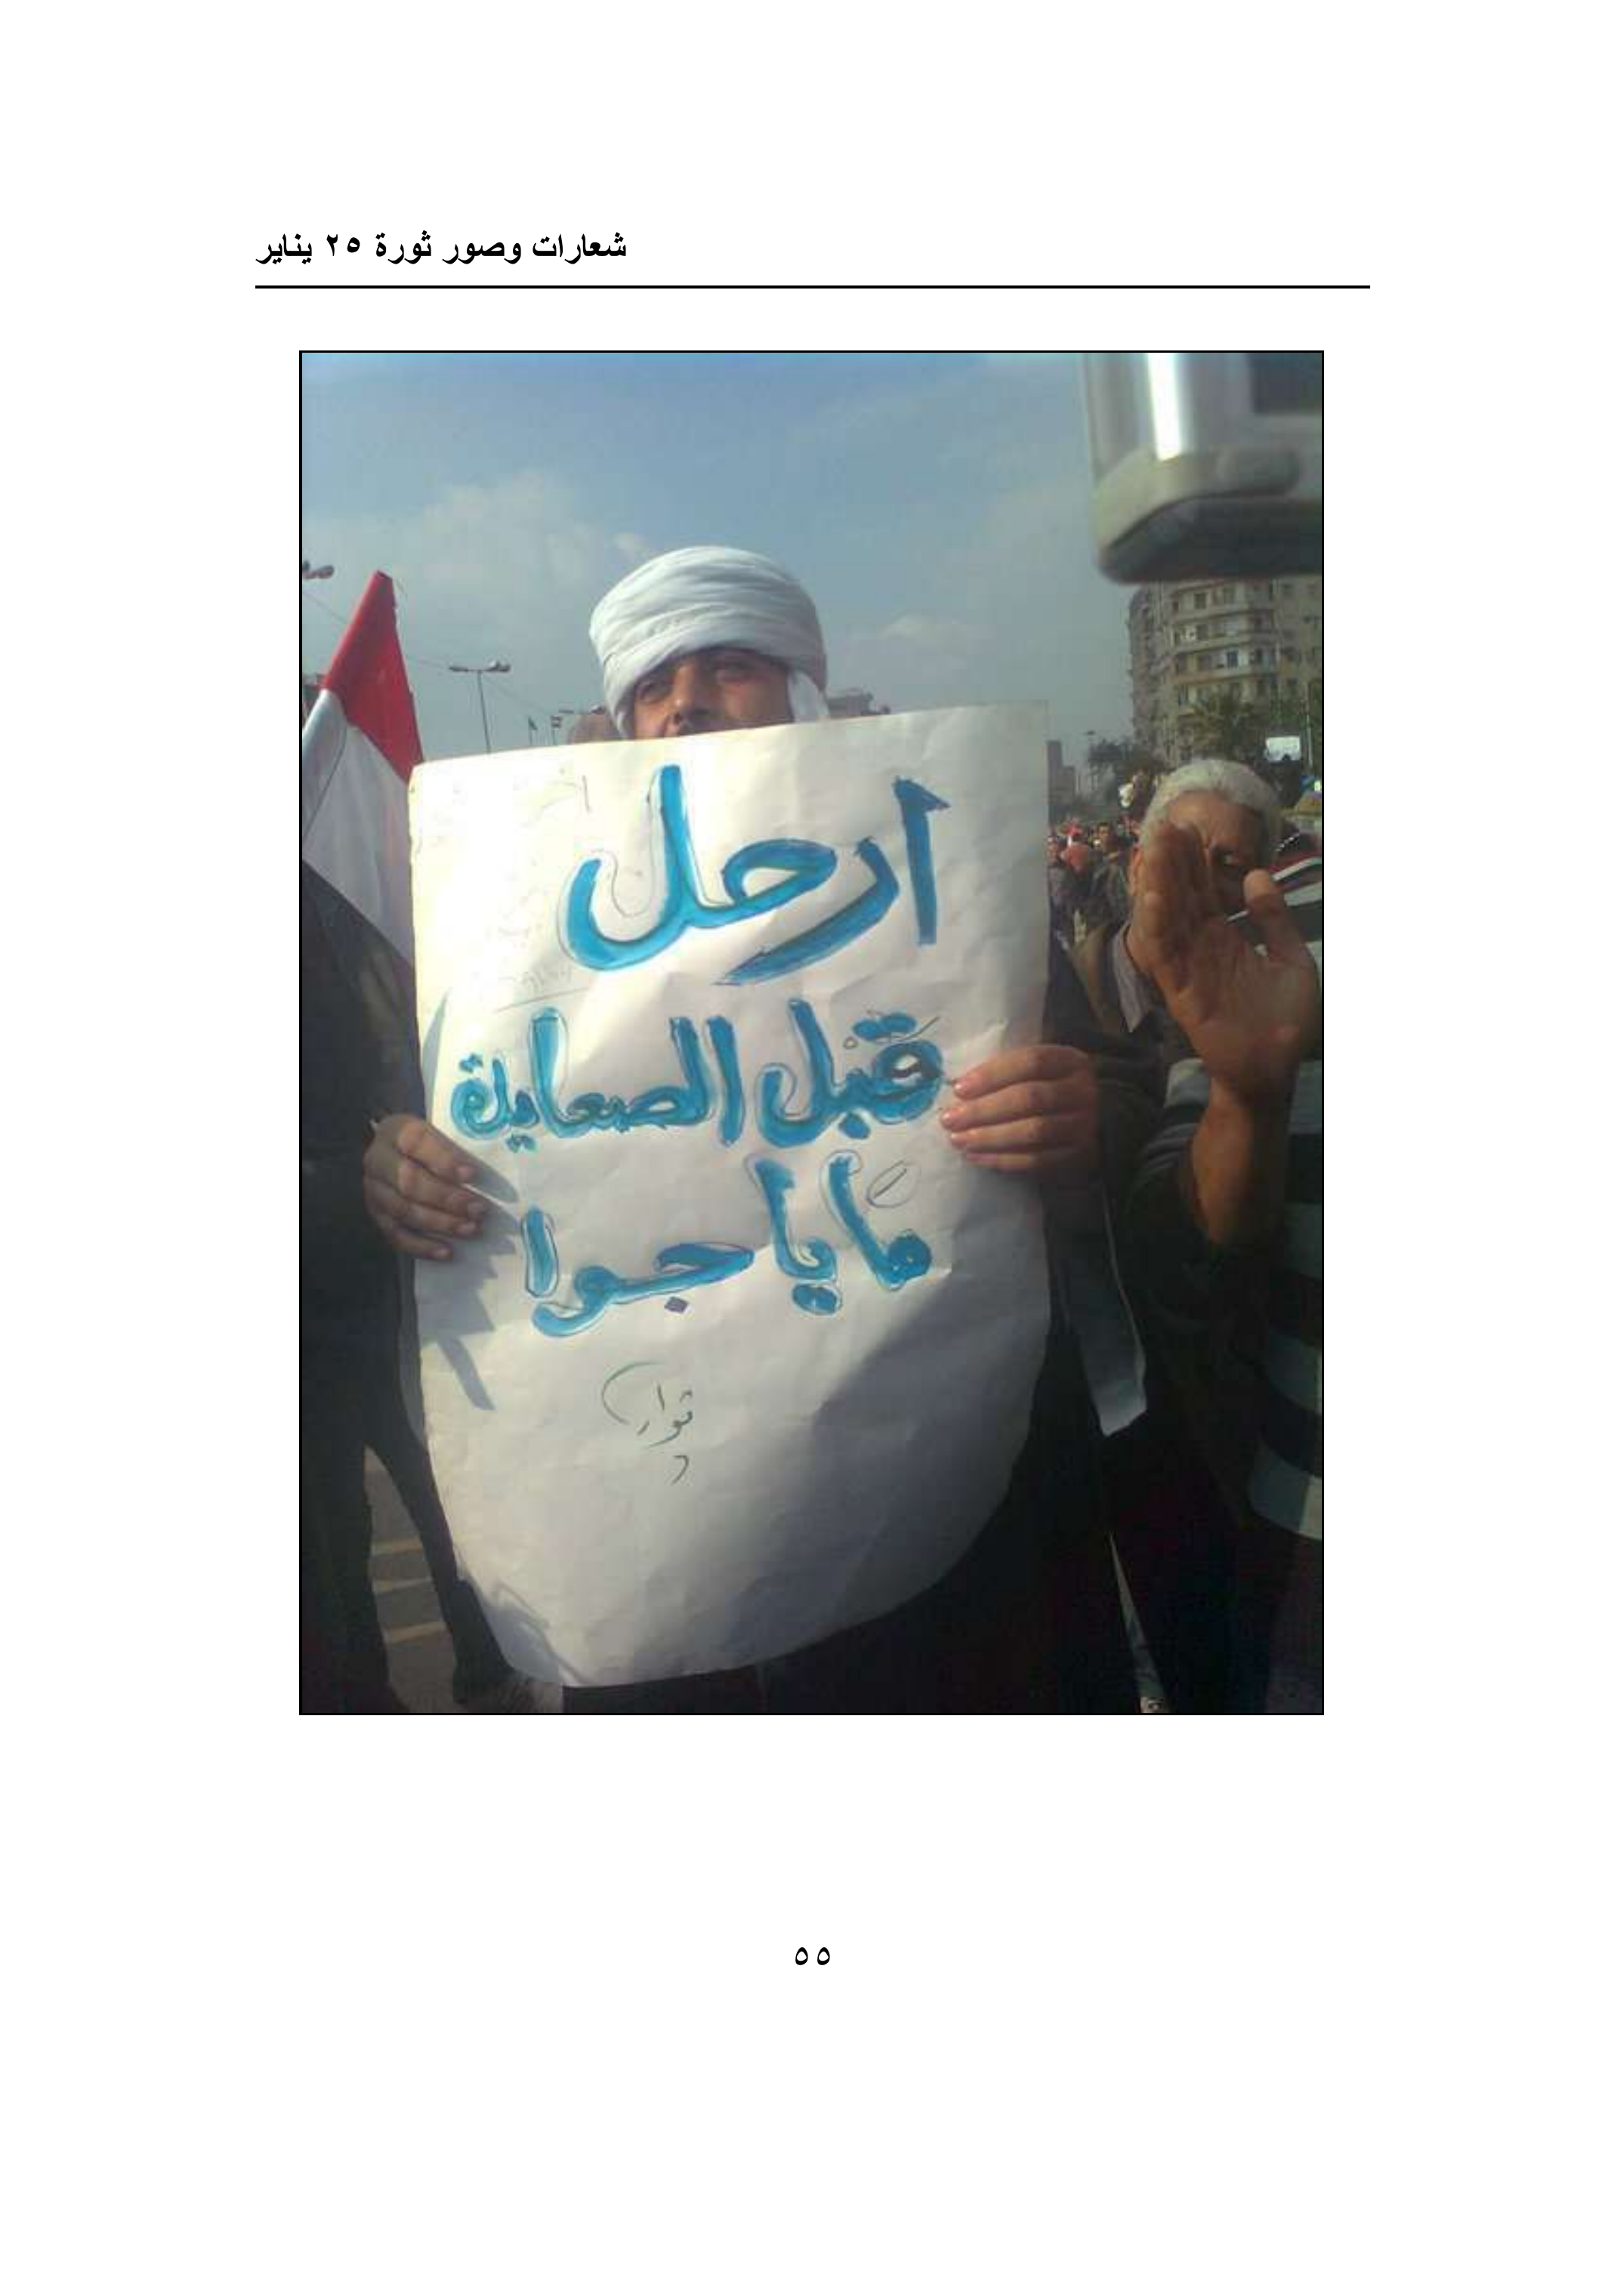 شعارات وصور ثورة ٢٥ يناير
ارحل
قبل الصعايدة
ما ياجوا
ثوار
٥٥